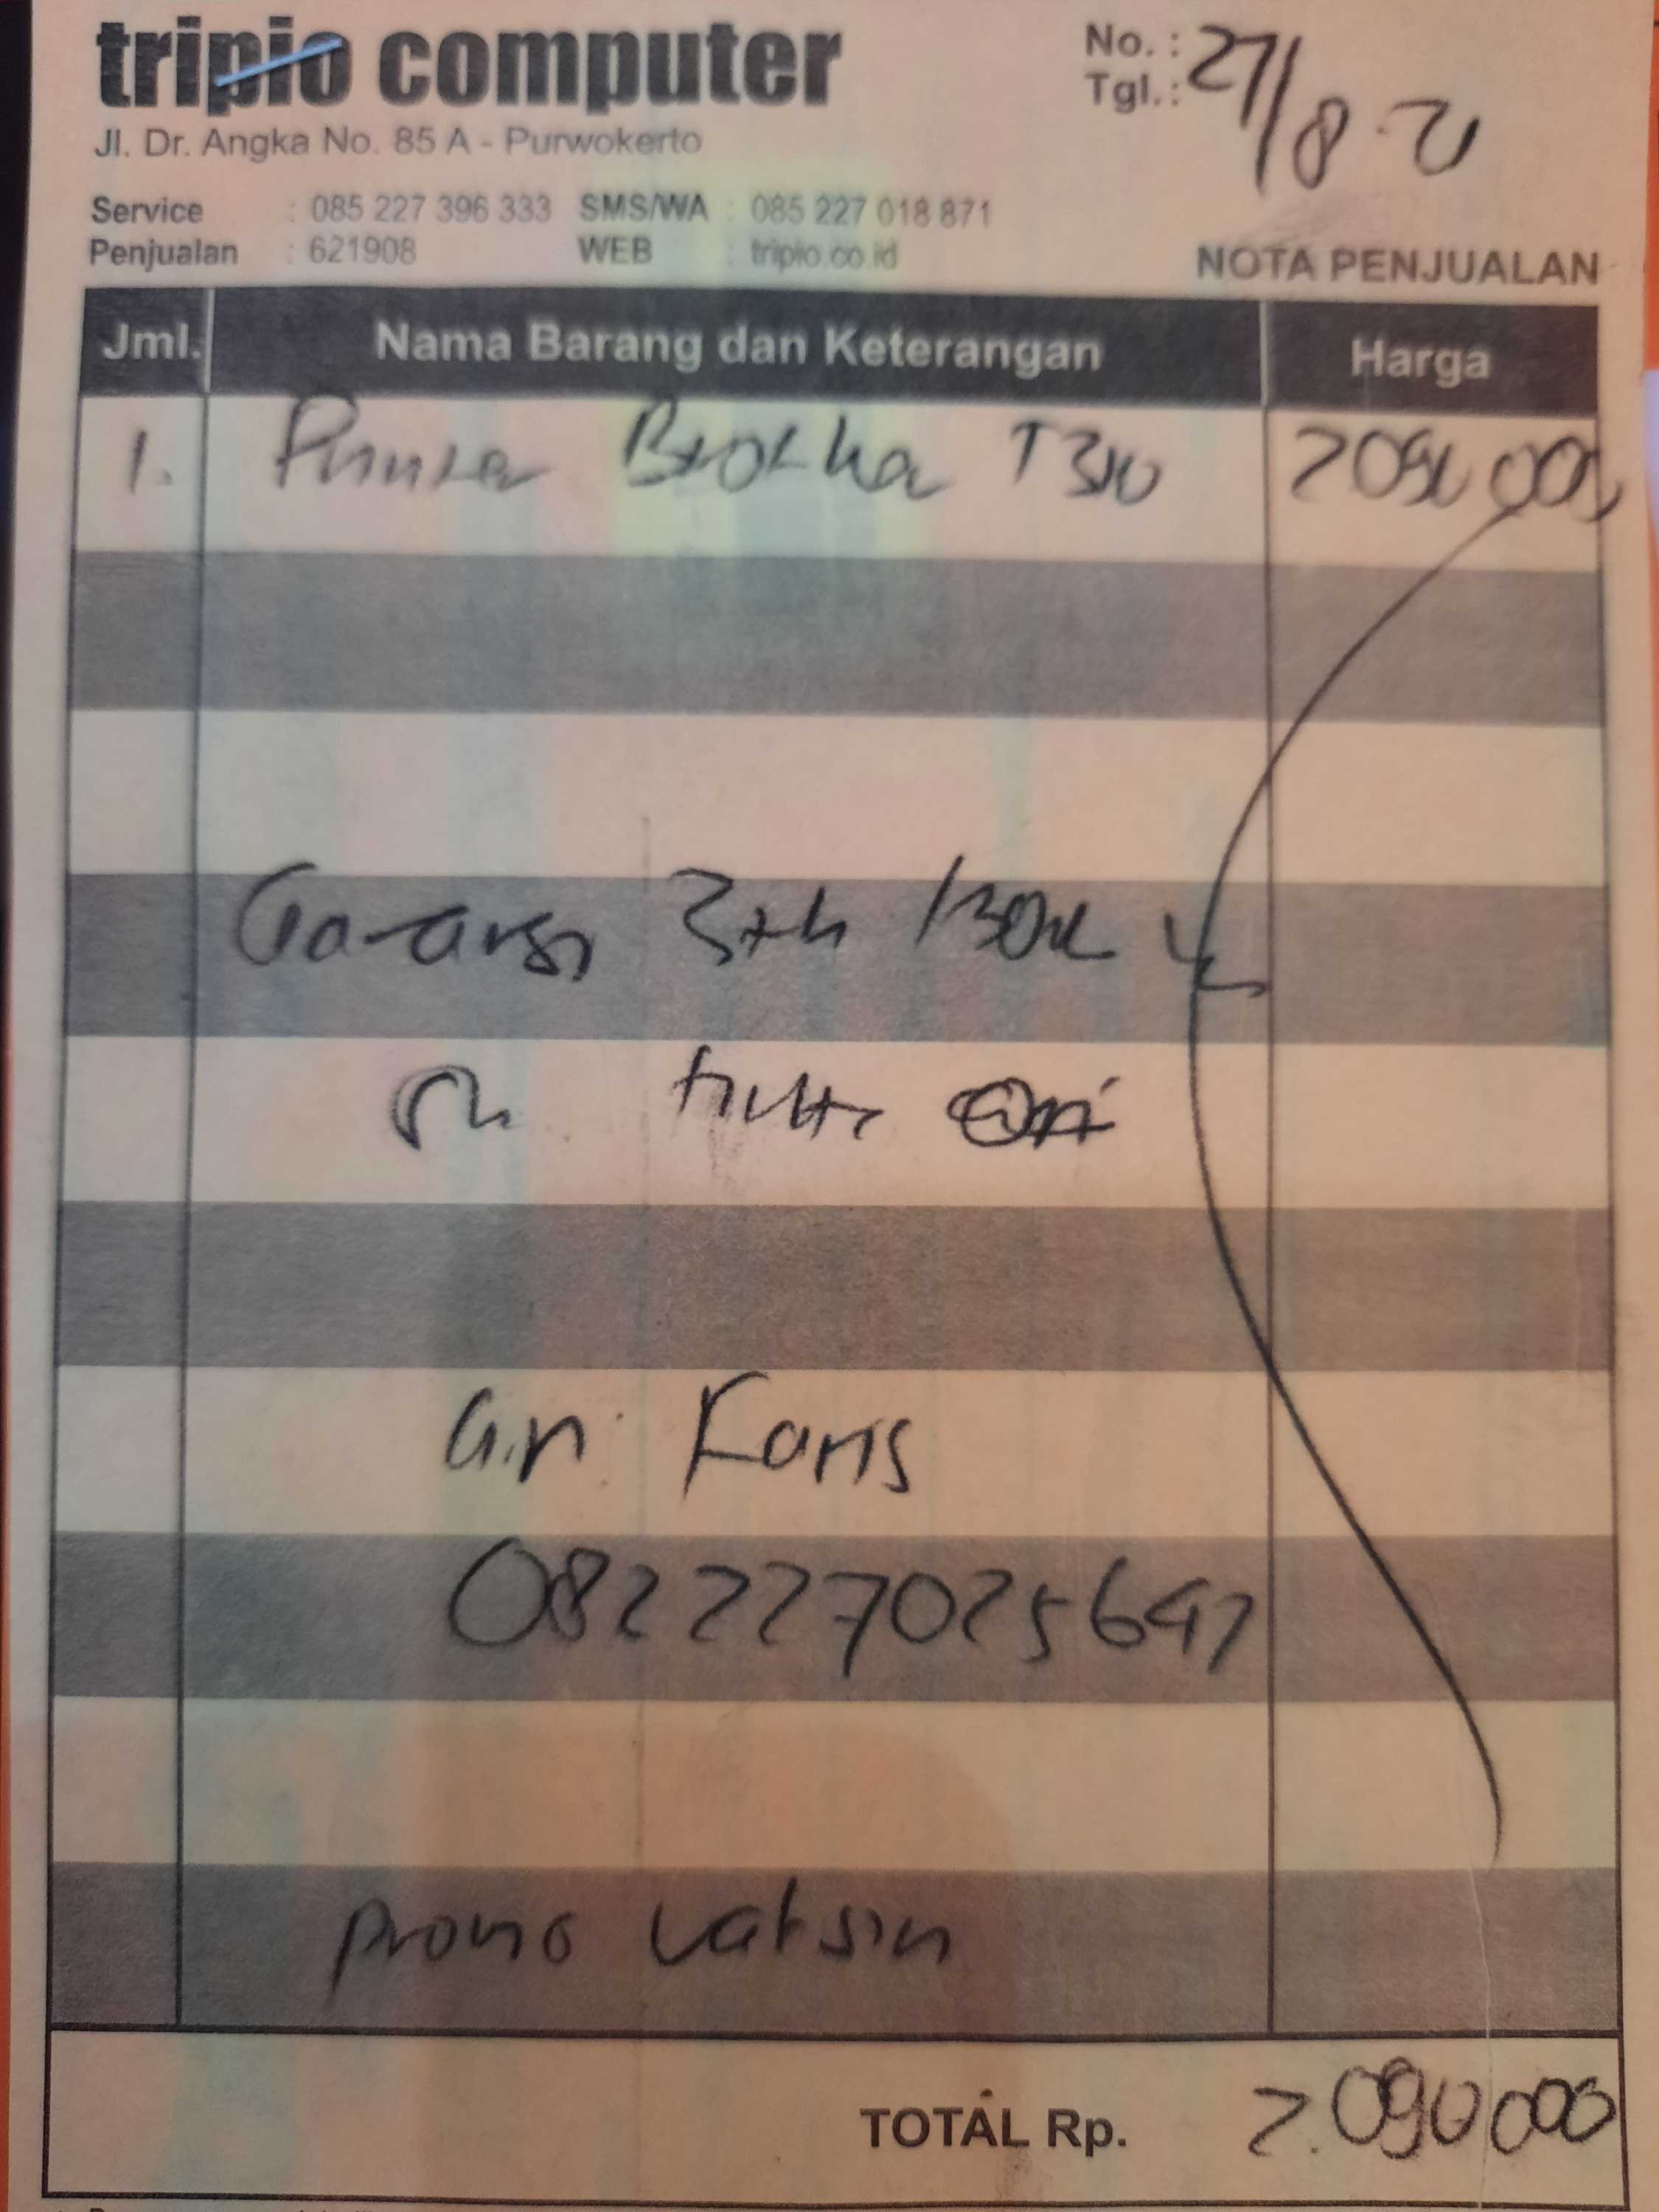 tripio computer
No. :
Tgl. : 27/8-21
Jl. Dr. Angka No. 85 A - Purwokerto
Service : 085 227 396 333 SMS/WA : 085 227 018 871
Penjualan : 621908 WEB : tripio.co.id
NOTA PENJUALAN
Jml. Nama Barang dan Keterangan Harga
1. Printer Brother T310 2090 000
Garansi 3th /30rb
tinta Ori
a.n. Faris
082227025647
promo vaksin
TOTAL Rp. 2.090 000